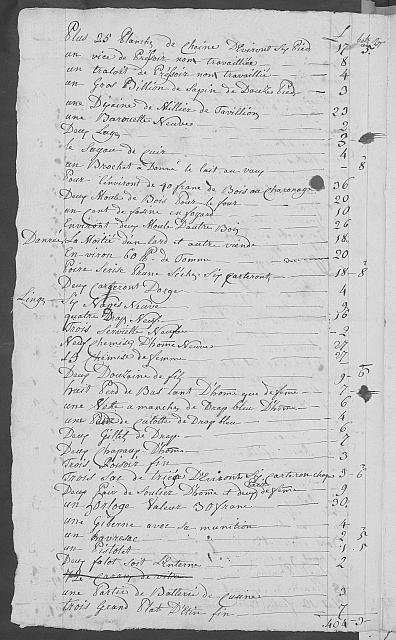 £ batz
Plus 25 Planche de Chêne D'Environt Six Pied — 17 - 5
un vice de Pressoir non travaillée — 8
un traloit de Pressoir non travaillé — 4
un Gros Billion de Sapin de Douze Pied — 3
une Dizaine de Millier de Tavillion — 23
une Barouette Neuve — 2
Deux — 3
le de cuir — 4
un Brochet a Donné le lait au vaux — 8
Pour L'environt de 40 franc de Bois au Charonage — 36
Deux Moule de Bois Pour le four — 20
un Cent de fasine en foyard — 10
Environt deux Moule D'autre Bois — 26
Danrée La Moitié d'un lard et autre viande — 18
Environ 60 lb de Tomme — 20
Poire Serise Prune Sèche Six Carteront — 18 - 8
Deux Carteront D'orge — 4
Linge Six Napes Neuve — 9
quatre Drap Neuf — 16
Trois Serviette Neufve — 2
Neuf Chemises D'home Neuve — 27
Chemise de femme — 27
Deux Douzaine de fil — 9 - 5
huit Pere de Bas tant D'home que de feme — 7
une Veste a manches de Drap bleu D'home — 6
une de Culotte de Drap bleu — 4
Deux Gillet de Drap — 6
Deux Chapaux D'home — 7
Trois fin — 3
Trois Sac de D'Environt Six Carteron chaque — 9 - 6
Deux Pair de Soulier D'home et deux de feme — 9
un horloge Valeur 30 franc — 30
une Giberne avec sa munition — 4
un havresac — 2 - 5
un Pistolet — 1 - 5
Deux falot Soit L'anterne — 2
une Partie de Batterie de Cuisine — 9
trois Grand Plat D'Etin fin — 7
404 - 9